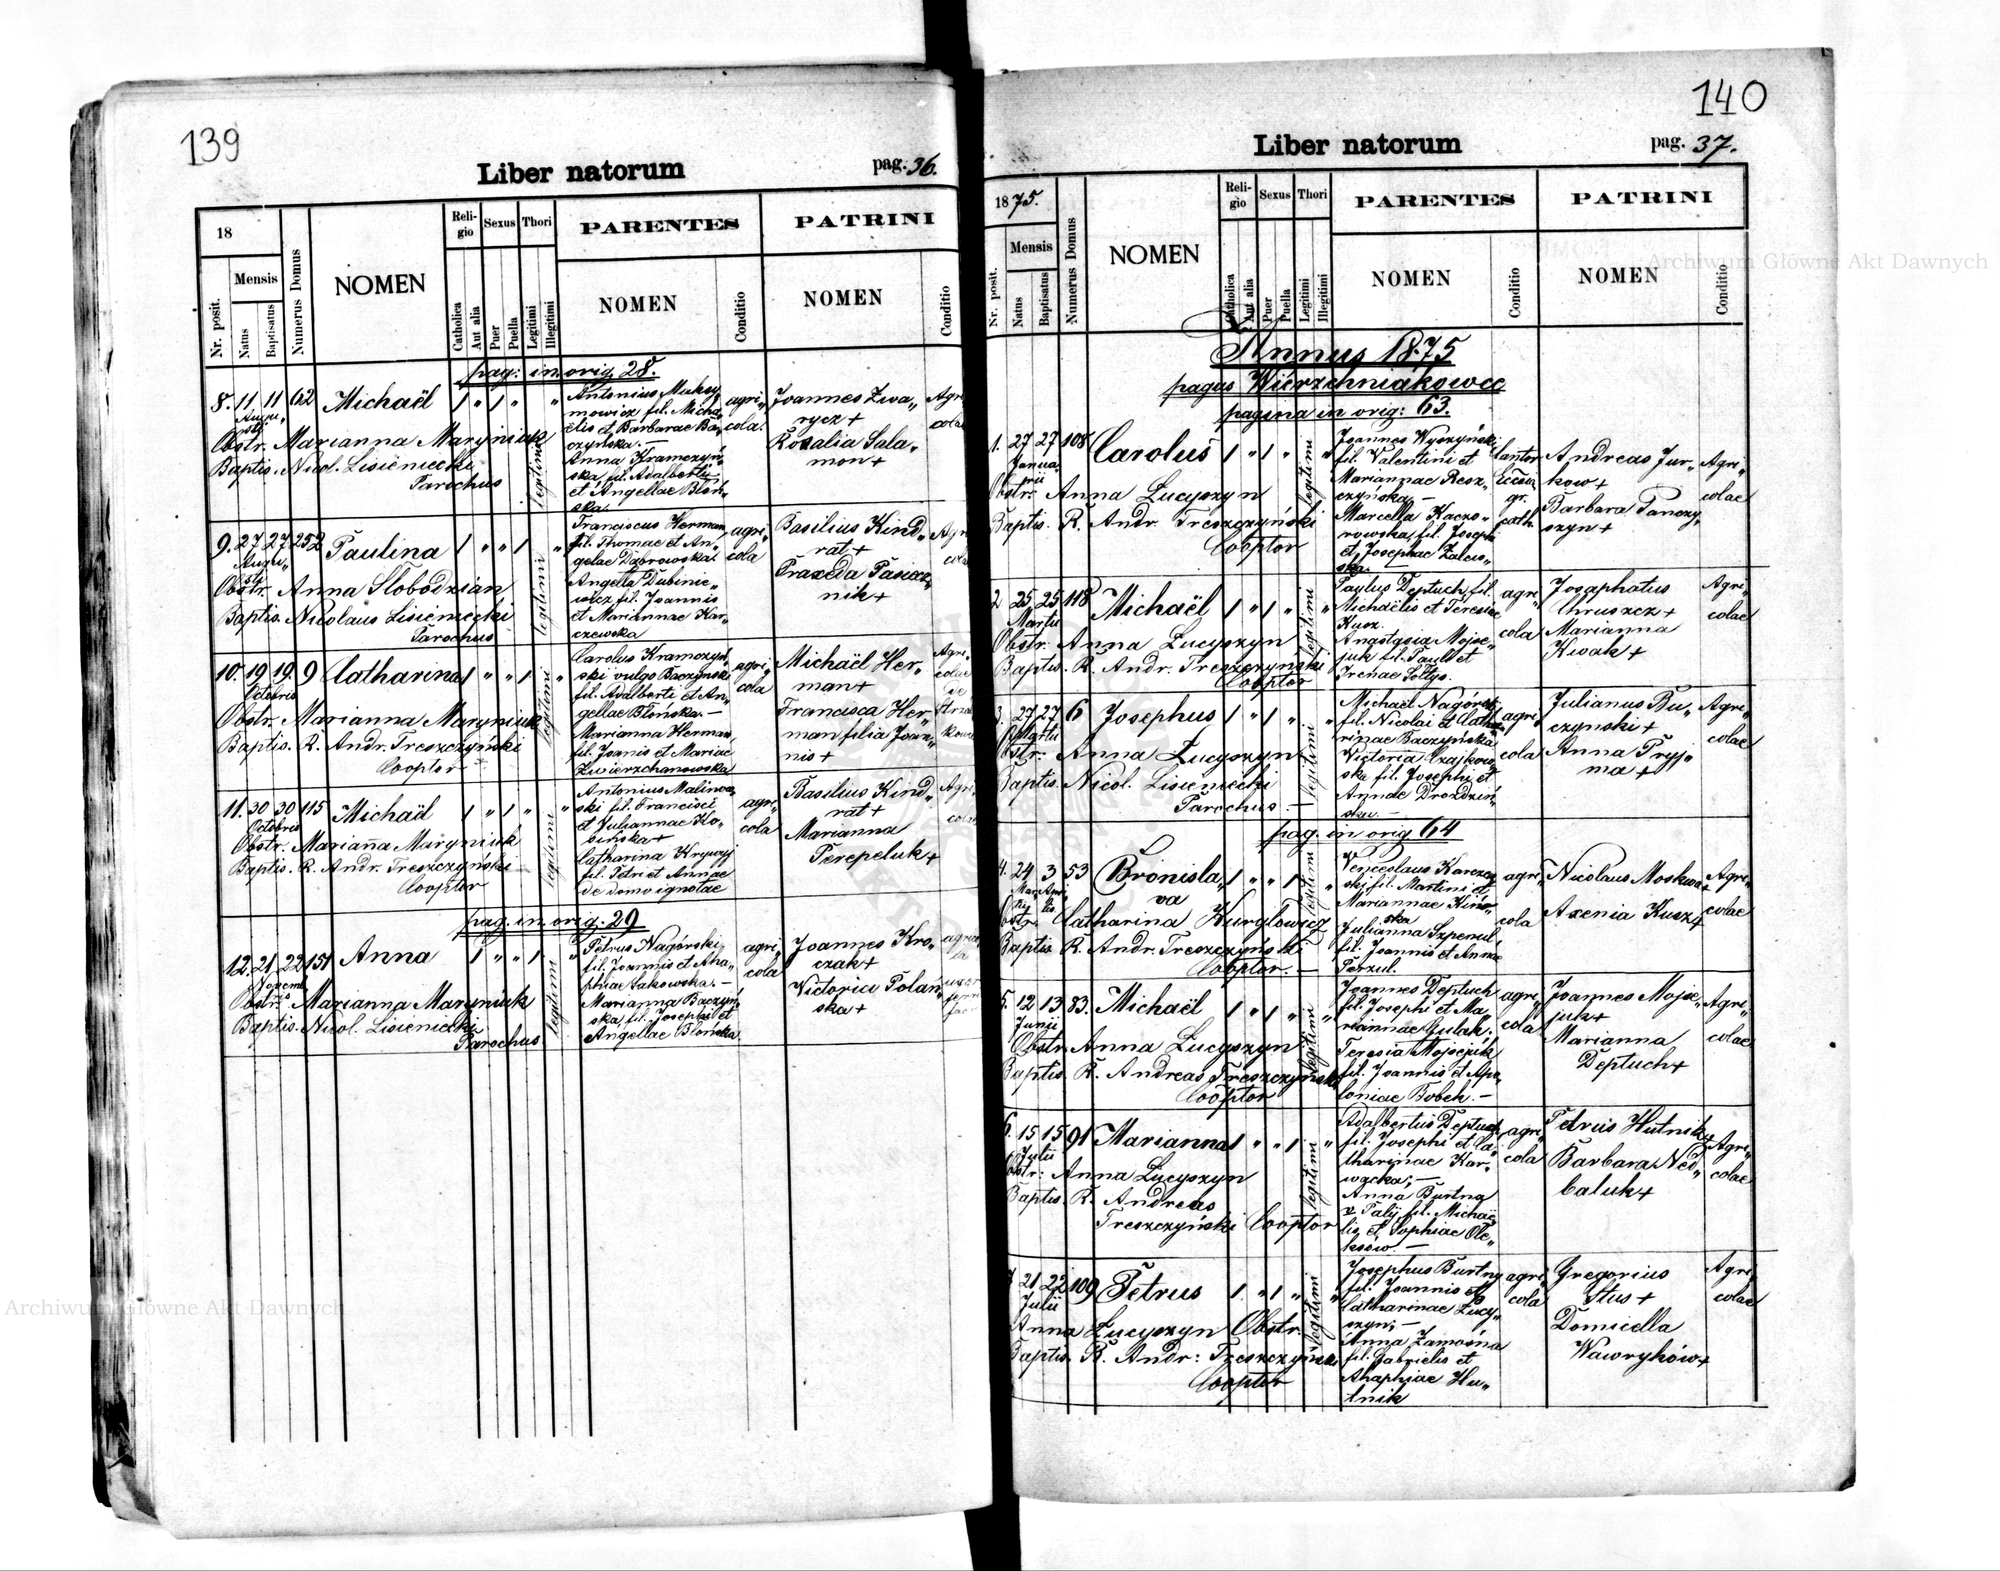 139
Liber natorum
pag. 36.
18
Mensis
Nr. posit.
Natus
Baptisatus
Numerus Domus
NOMEN
Religio
Catholica
Aut alia
Sexus
Puer
Puella
Thori
Legitimi
Illegitimi
PARENTES
NOMEN
Conditio
PATRINI
NOMEN
Conditio
pag: in orig. 28.
8. 11 11 62 Michaël 1 " 1 " "
Augusti
Obstr. Marianna Maryniuk
Baptis. Nicol. Lisieniecki
Parochus
legitimi
Antonius Maksy„
mowicz fil. Micha„
ëlis et Barbarae Ba„
czyńska. —
Anna Kramczyń„
ska fil. Adalberti
et Angellae Błoń„
ska.
agri„
cola.
Joannes Zwa„
rycz +
Rozalia Sala„
mon +
Agri
colae
9. 27 27 252 Paulina 1 " " 1 "
Augu„
sti
Obstr. Anna Słobodzian
Baptis. Nicolaus Lisieniecki
Parochus
legitimi
Franciscus Herman
fil. Thomae et An„
gelae Dąbrowska.
Angella Dubinie„
wicz fil. Joannis
et Mariannae Kar„
czewska
agri„
cola
Basilius Kind„
rat +
Praxeda Pasiecz„
nik +
10. 19 19. 9 Catharina 1 " " 1 "
Octobris
Obstr. Marianna Maryniuk
Baptis. R. Andr. Treszczyński
Cooptor
legitimi
Carolus Kramczyń„
ski vulgo Baczyński
fil. Adalberti et An„
gellae Błońska. —
Marianna Herman,
fil. Joanis et Mariae
Zwierzchanowska
agri„
cola
Michaël Her„
man +
Francisca Her„
man filia Joan„
nis +
Agri„
colae
de
11. 30 30 115 Michaël 1 " 1 " "
Octobris
Obstr. Marianna Maryniuk
Baptis. R. Andr. Treszczyński
Cooptor
legitimi
Antonius Malinow„
ski fil. Francisci
et Juliannae Kło„
bińska +
Catharina Krywyj
fil. Petri et Annae
de domo ignotae
agri„
cola
Basilius Kind„
rat +
Marianna
Perepeluk +
Agri„
colae
pag. in orig: 29
12. 21 22 151 Anna 1 " " 1 "
Novem„
Obstr. Marianna Maryniuk
Baptis. Nicol. Lisieniecki
Parochus
legitimi
Petrus Nagórski,
fil. Joannis et Aha„
phiae Sakowska. —
Marianna Baczyń„
ska, fil. Josephi et
Angellae Błońska.
agri„
cola
Joannes Kro„
czak +
Victoria Polań„
ska +
140
Liber natorum
pag. 37.
1875.
Mensis
Nr. posit.
Natus
Baptisatus
Numerus Domus
NOMEN
Religio
Catholica
Aut alia
Sexus
Puer
Puella
Thori
Legitimi
Illegitimi
PARENTES
NOMEN
Conditio
PATRINI
NOMEN
Conditio
Annus 1875
pagus Wierzchniakowce
pagina in orig: 63.
1. 27 27 108 Carolus 1 " 1 " "
Janua„
rii
Obstr. Anna Łucyszyn
Baptis. R. Andr. Treszczyński
Cooptor
legitimi
Joannes Wyszyński
fil. Valentini et
Mariannae Resz„
czyńska —
Marcella Kaczo„
rowska, fil. Josephi
et Josephae Zales„
ska. —
Cantor
Eccles.
gr.
cath.
Andreas Jur„
kow +
Barbara Panczy„
szyn +
Agri„
colae
2 25 25 118 Michaël 1 " 1 " "
Martii
Obstr. Anna Łucyszyn
Baptis. R. Andr. Treszczyński
Cooptor
legitimi
Paulus Deptuch, fil.
Michaëlis et Teresiae
Kusz.
Anastasia Mojse„
juk fil. Pauli et
Irenae Sołtys.
agri„
cola
Josaphatus
Chruszcz +
Marianna
Kisak +
Agri„
colae
3. 27 27 6 Josephus 1 " 1 " "
Martii
Obstr. Anna Łucyszyn
Baptis. Nicol. Lisieniecki
Parochus. —
legitimi
Michaël Nagórski
fil. Nicolai et Catha„
rinae Baczyńska
Victoria Czajkow„
ska fil. Josephi et
Annae Drozdziń„
ska. —
agri„
cola
Julianus Bu„
czynski +
Anna Pryj„
ma +
Agri„
colae
pag. in orig 64
4. 24 3 53 Bronisla„ 1 " " 1 "
va
Obstr. Catharina Kurgłowicz
Baptis. R. Andr. Treszczyński
Cooptor. —
legitimi
Venceslaus Karczew„
ski, fil. Martini et
Mariannae Kińo„
ska
Julianna Szpenul
fil. Joannis et Annae
Perzul.
agri„
cola
Nicolaus Moskwa +
Axenia Kusz +
Agri„
colae
5. 12 13 83. Michaël 1 " 1 " "
Junii
Obstr. Anna Łucyszyn
Baptis. R. Andreas Treszczyński
Cooptor
legitimi
Joannes Deptuch
fil. Josephi et Ma„
riannae Gulak.
Teresia Mojsejuk
fil. Joannis et Apo„
loniae Bobek. —
agri„
cola
Joannes Mojse„
juk +
Marianna
Deptuch +
Agri„
colae
6. 15 15 91 Marianna 1 " " 1 "
Julii
Obstr: Anna Łucyszyn
Baptis. R. Andreas
Treszczyński Cooptor
legitimi
Adalbertus Deptuch,
fil. Josephi et Ca„
tharinae Kar„
wacka, —
Anna Burtny
v Palij, fil. Michaë„
lis et Sophiae Ole„
ksów. —
agri„
cola
Petrus Hutnik +
Barbara Ned„
baluk +
Agri„
colae
7 21 22 109 Petrus 1 " 1 " "
Julii
Anna Łucyszyn Obstr.
Baptis. R. Andr: Treszczyński
Cooptor
legitimi
Josephus Burtny
fil. Joannis et
Catharinae Łucy„
szyn, —
Anna Zamośna
fil. Gabrielis et
Ahaphiae Hu„
tnik
agri„
cola
Gregorius
Stus +
Domicella
Wawryków +
Agri„
colae
Archiwum Główne Akt Dawnych
Archiwum Główne Akt Dawnych